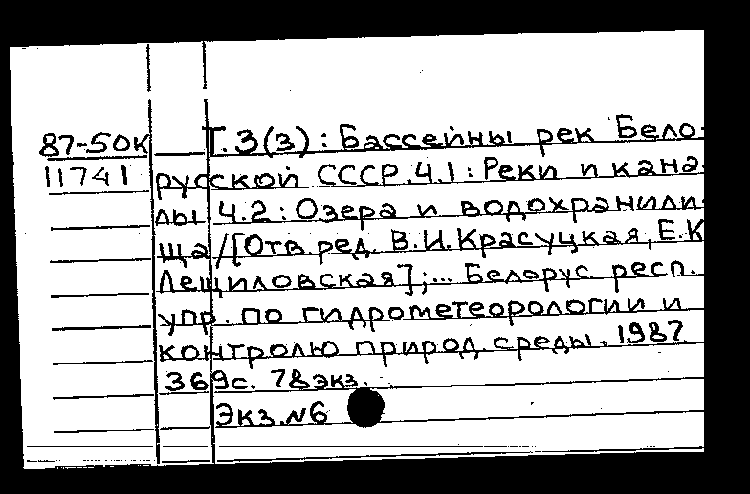 87-50к Т.3(3): Бассейны рек Бело-
11741 русской СССР.Ч.1: Реки и кана-
лы Ч.2: Озера и водохранили-
ща/[Отв.ред. В.И.Красуцкая, Е.К
Лещиловская];... Беларус респ.
упр. по гидрометеорологии и
контролю природ. среды. 1987
369с. 78экз.
Экз.N6